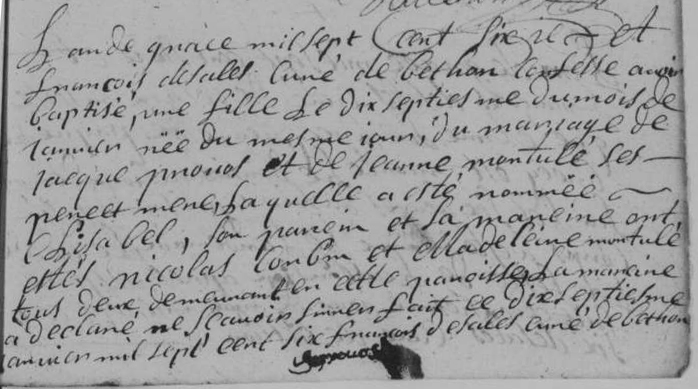 L an de grace mil sept cent six je et
françois desales curé de bethon confesse avoir
baptisé, une fille Le dix septiesme du mois de
ianvier néé du mesme iour, du mariage de
jacque pruvos et de Jeanne montulé ses
pere et mere, Laquelle a esté nommëé
Elisabel, son parein et sa mareine ont
estés nicolas et Madeleine montulé
tous deux demeurant en cette paroisse, La mareine
a declaré ne scavoir siner fait ce dix septiesme
ianvier mil sept cent six françois desales curé de bethon